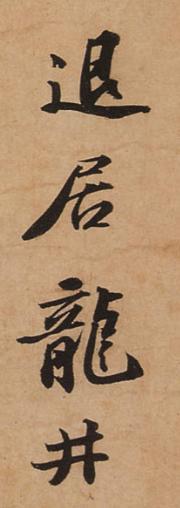 退居龍井